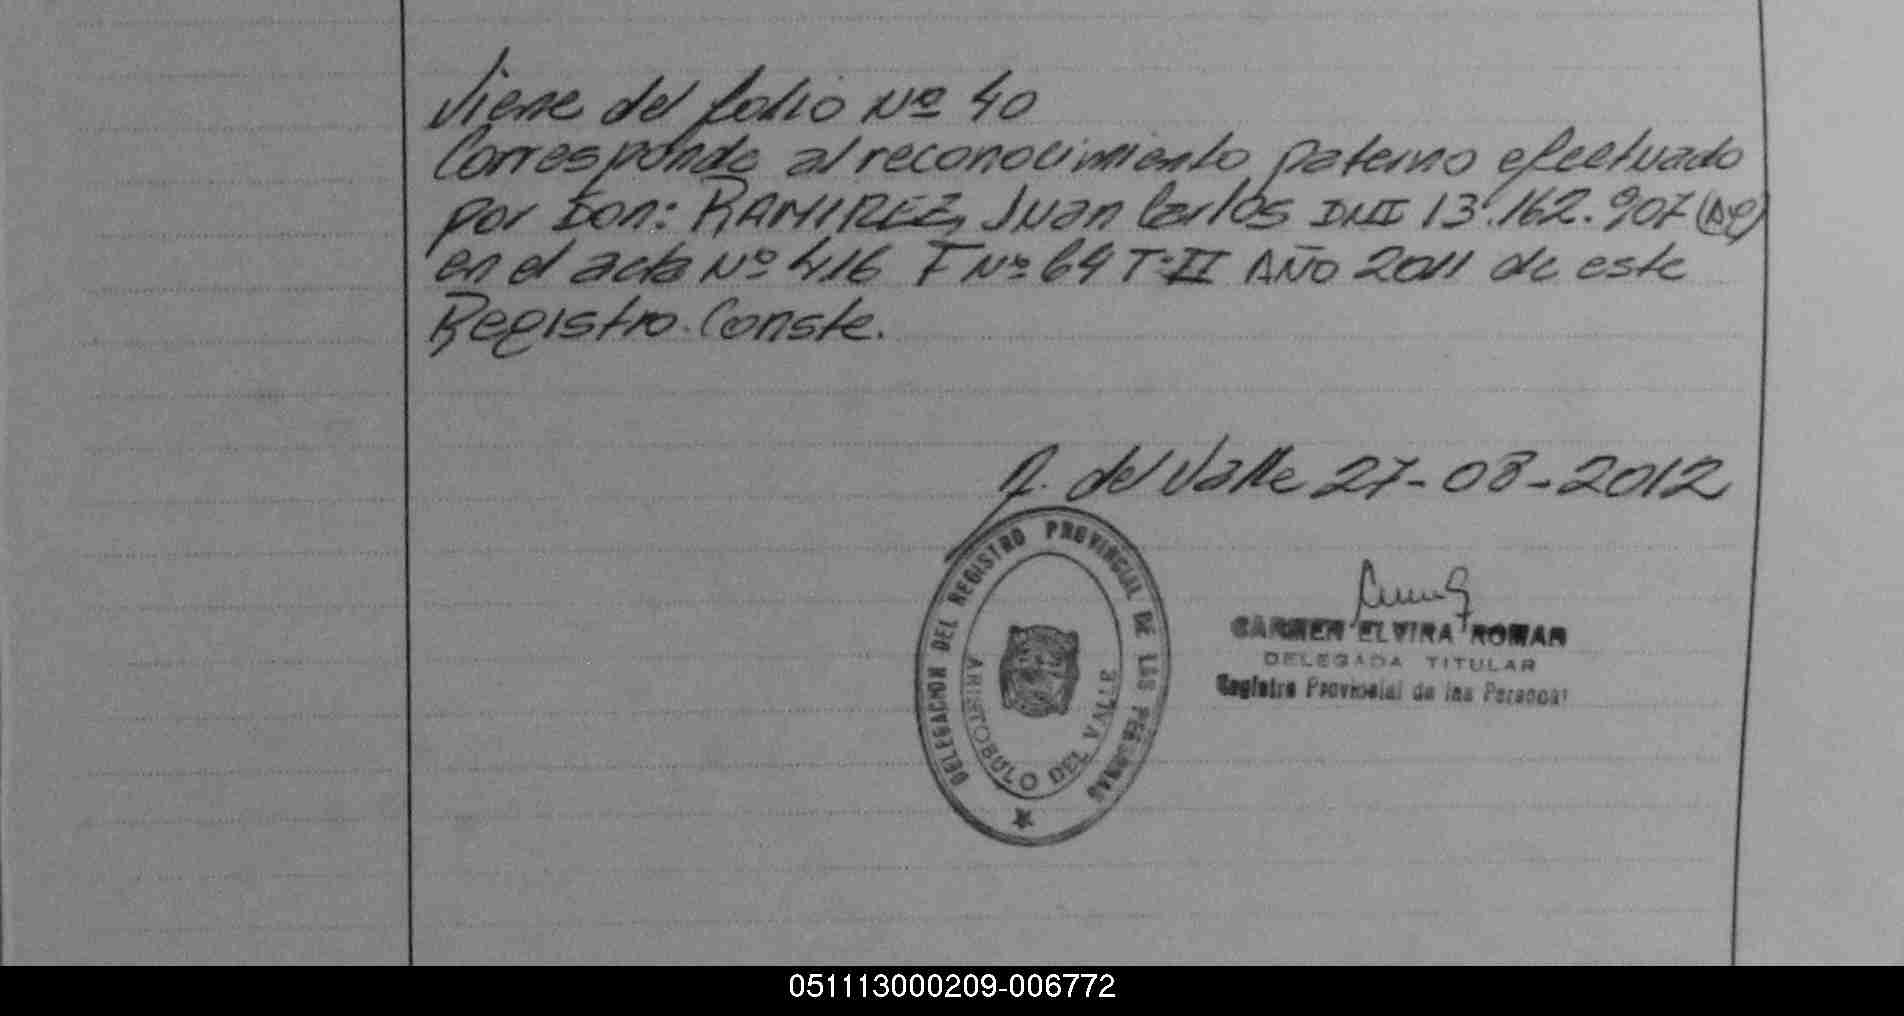 Viene del folio Nº 40
Corresponde al reconocimiento paterno efectuado
por Don: RAMIREZ, Juan Carlos DNI 13.162.907
en el acta Nº 416 F Nº 64 T: II AÑO 2011 de este
Registro. Conste.
A. del Valle 27-08-2012
DELEGACION DEL REGISTRO PROVINCIAL DE LAS PERSONAS
ARISTOBULO DEL VALLE
CARMEN ELVIRA ROMAN
DELEGADA TITULAR
Registro Provincial de las Personas
051113000209-006772